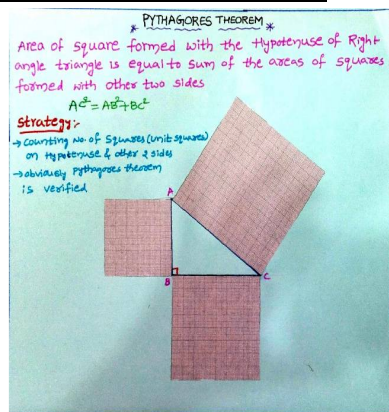 * PYTHAGORES THEOREM *
Area of square formed with the Hypotenuse of Right
angle triangle is equal to sum of the areas of squares
formed with other two sides
AC² = AB² + BC²
Strategy:-
→ Counting No. of Squares (Unit squares)
on Hypotenuse & other 2 sides
→ obviously pythagores theorem
is verified
A
B
C